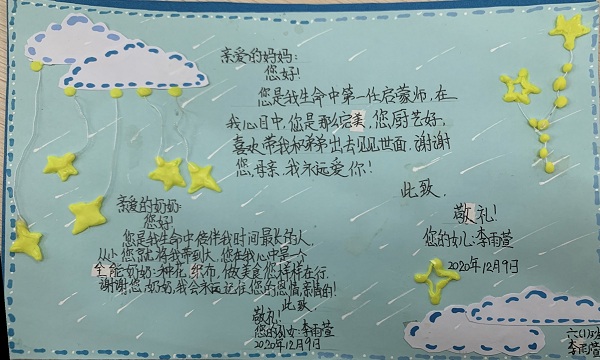 亲爱的妈妈:
您好!
您是我生命中第一任启蒙师,在
我心目中,您是那么完美,您厨艺好,
喜欢带我和弟弟出去见见世面,谢谢
您,母亲,我永远爱你!
此致
敬礼!
您的女儿:李雨萱
2020年12月9日
亲爱的奶奶:
您好!
您是我生命中陪伴我时间最长的人,
从小您就将我带到大,您在我心中是一个
全能奶奶:种花,织布,做美食您样样在行.
谢谢您,奶奶,我会永远记住您的恩情亲情的!
此致
敬礼!
您的孙女:李雨萱
2020年12月9日
六(1)班
李雨萱